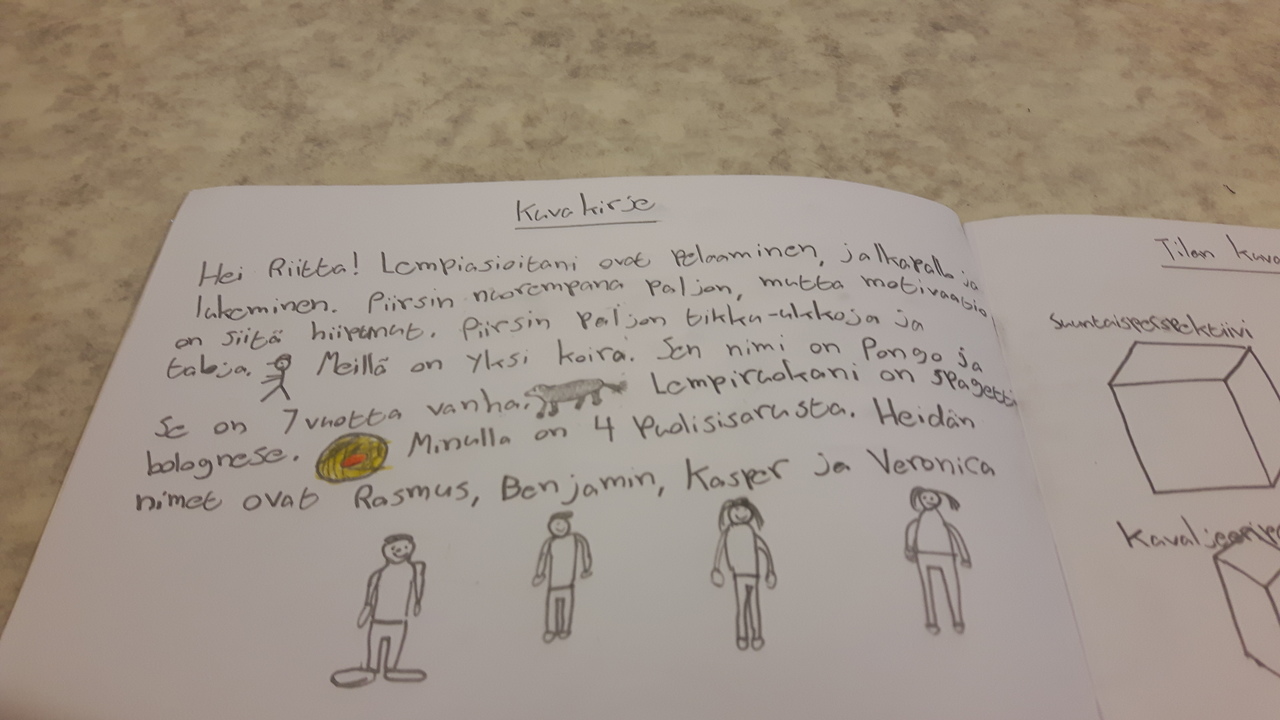 Kuvakirje
Hei Riitta! Lempiasioitani ovat pelaaminen, jalkapallo ja
lukeminen. Piirsin nuorempana paljon, mutta motivaatio
on siitä hiipunut. Piirsin paljon tikku-ukkoja ja
taloja. Meillä on yksi koira. Sen nimi on Pongo ja
se on 7 vuotta vanha. Lempiruokani on spagetti
bolognese. Minulla on 4 puolisisarusta. Heidän
nimet ovat Rasmus, Benjamin, Kasper ja Veronica
Tilan kuva
Suuntaisperspektiivi